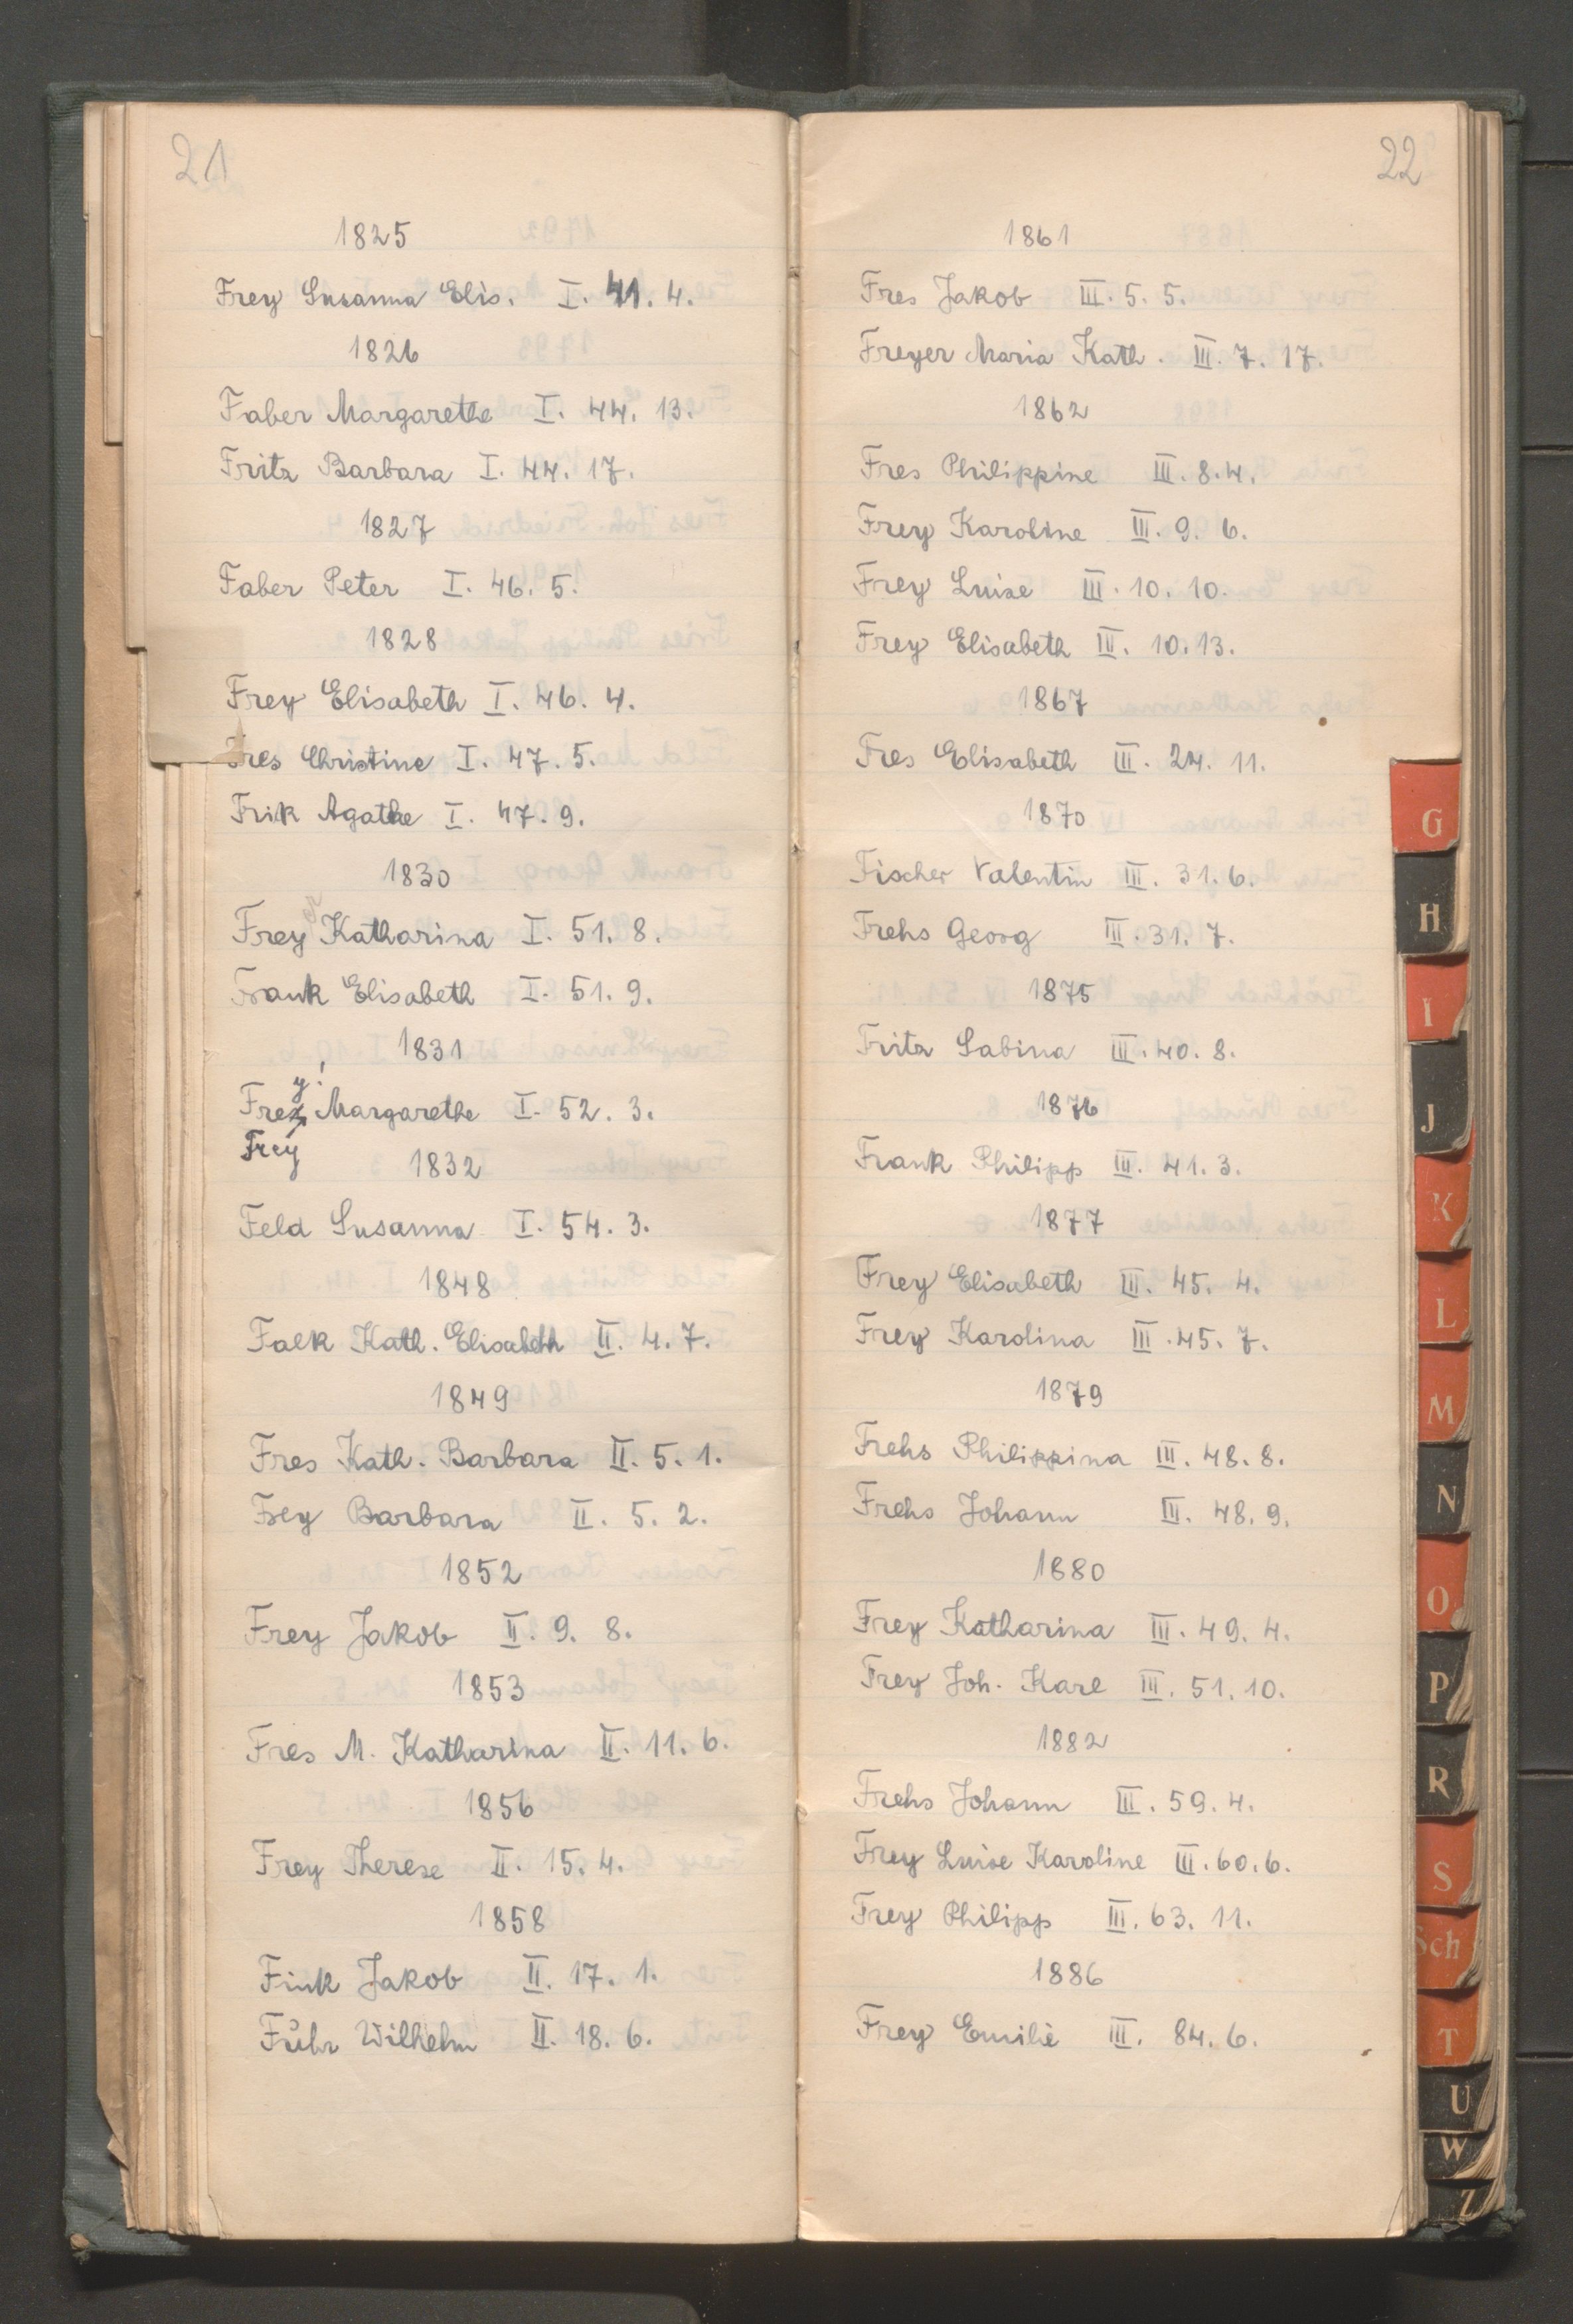 21
1825
Frey Susanna Elis. I. 41. 4.
1826
Faber Margarethe I. 44. 13.
Fritz Barbara I. 44. 17.
1827
Faber Peter I. 46. 5.
1828
Frey Elisabeth I. 46. 4.
Fres Christine I. 47. 5.
Frik Agathe I. 47. 9.
1830
Frey Katharina I. 51. 8.
Frank Elisabeth I. 51. 9.
1831
y!
Frez Margarethe I. 52. 3.
Frey
1832
Feld Susanna I. 54. 3.
1848
Falk Kath. Elisabeth II. 4. 7.
1849
Fres Kath. Barbara II. 5. 1.
Frey Barbara II. 5. 2.
1852
Frey Jakob II. 9. 8.
1853
Fres M. Katharina II. 11. 6.
1856
Frey Therese II. 15. 4.
1858
Fink Jakob II. 17. 1.
Führ Wilhelm II. 18. 6.
22
1861
Fres Jakob III. 5. 5.
Freyer Maria Kath. III. 7. 17.
1862
Fres Philippine III. 8. 4.
Frey Karoline III. 9. 6.
Frey Luise III. 10. 10.
Frey Elisabeth III. 10. 13.
1867
Fres Elisabeth III. 24. 11.
1870
Fischer Valentin III. 31. 6.
Frehs Georg III. 31. 7.
1875
Fritz Sabina III. 40. 8.
1876
Frank Philipp III. 41. 3.
1877
Frey Elisabeth III. 45. 4.
Frey Karolina III. 45. 7.
1879
Frehs Philippina III. 48. 8.
Frehs Johann III. 48. 9.
1880
Frey Katharina III. 49. 4.
Frey Joh. Karl III. 51. 10.
1882
Frehs Johann III. 59. 4.
Frey Luise Karoline III. 60. 6.
Frey Philipp III. 63. 11.
1886
Frey Emilie III. 84. 6.
G
H
I
J
K
L
M
N
O
P
R
S
Sch
T
U
W
Z